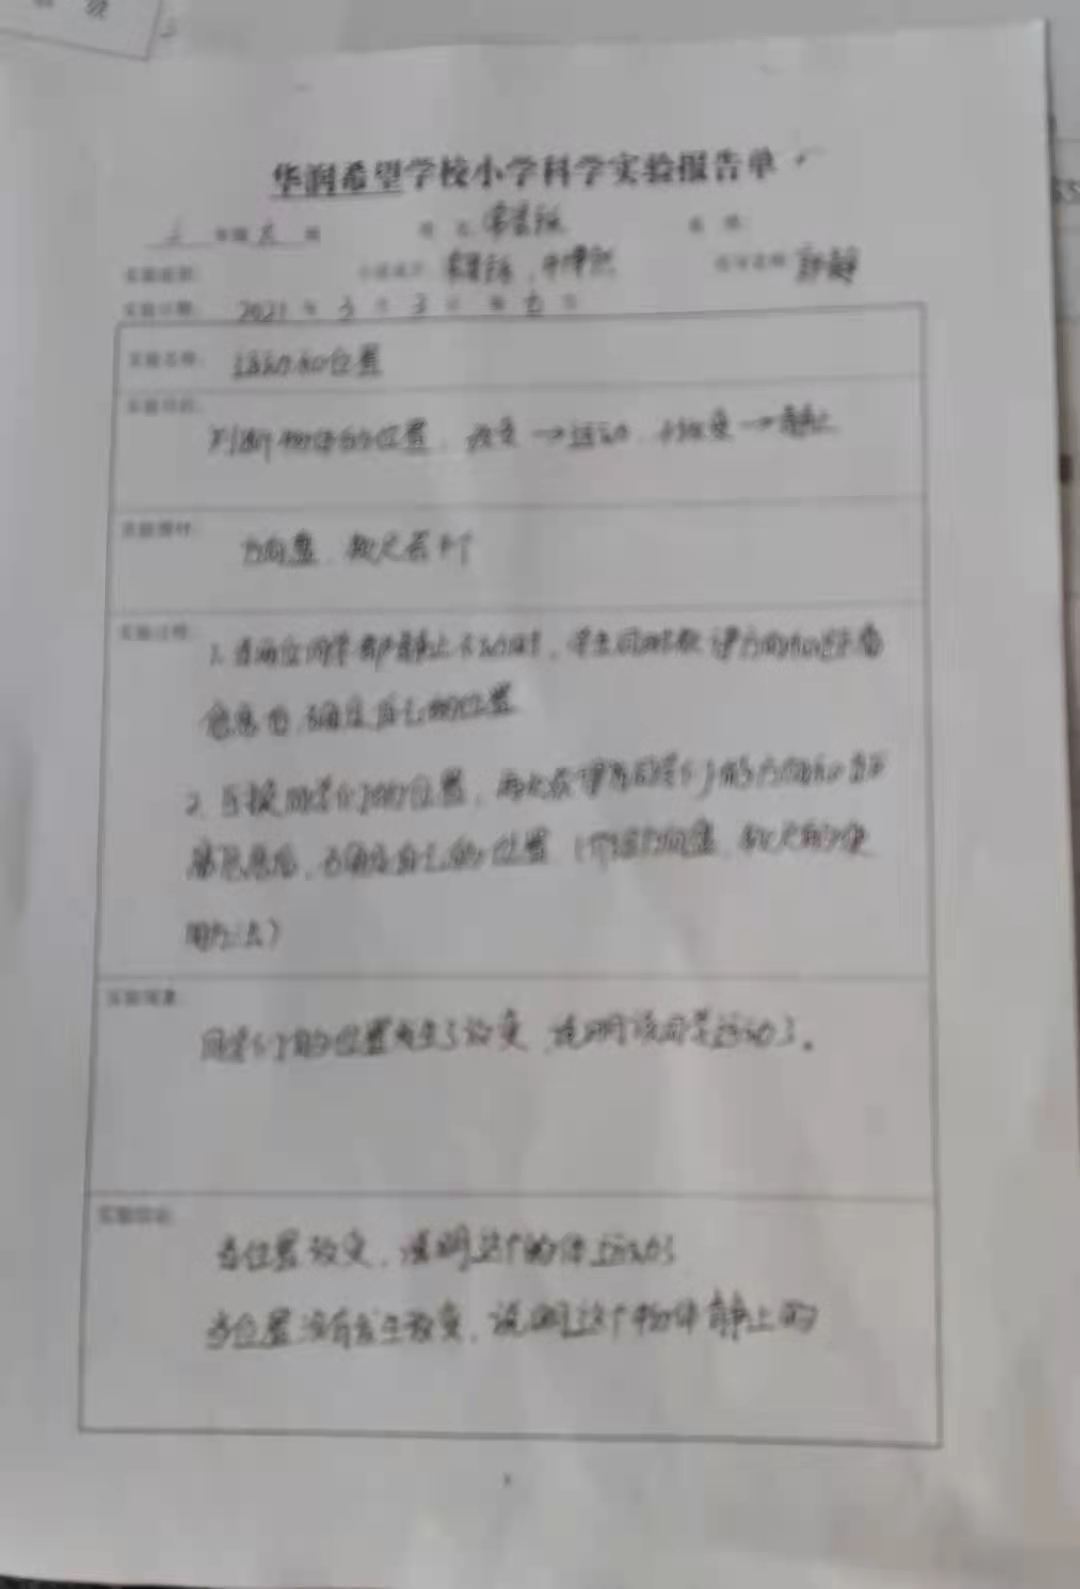 华润希望学校小学科学实验报告单
三 年级 班 姓名
实验日期: 2021 年 3 月 3 日
实验名称: 运动和位置
实验目的:
判断物体的位置, 改变→运动, 不改变→静止
实验器材:
方向盘、软尺若干个
实验过程:
1. 当两位同学都静止不动时, 学生同时获得方向和距离
信息后,确定自己的位置
2. 互换同学们的位置, 再次获得同学们的方向和距
离信息后, 确定自己的位置 (方向盘、软尺的使
用办法)
实验现象:
同学们的位置发生了改变 说明该同学运动了。
实验结论:
当位置改变, 说明这个物体运动了
当位置没有发生改变, 说明这个物体静止的